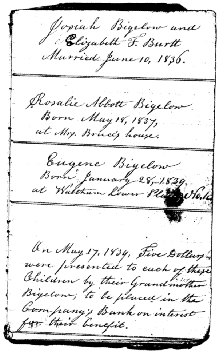 Josiah Bigelow and
Elizabeth F. Burtt
Married June 10, 1836.
Rosalie Abbott Bigelow
Born May 18, 1837,
at Mr. Brued's house.
Eugene Bigelow
Born January 28, 1839.
at Waltham Lower
On May 17, 1839, Five Dollars
were presented to each of these
Children by their Grandmother
Bigelow, to be placed in the
Company's Bank on interest
for their benefit.